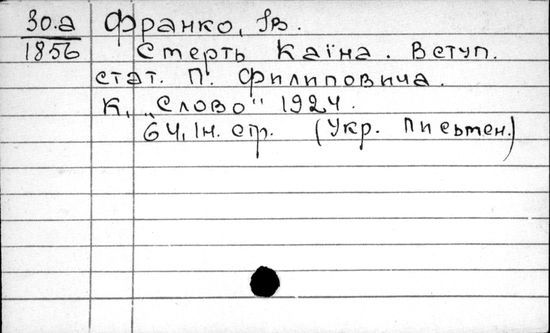 30.а Франко, Ів.
1856 Смерть Каїна. Вступ.
стат. П. Филиповича.
К., „Слово" 1924.
64, Ін. стр. (Укр. Письмен.)